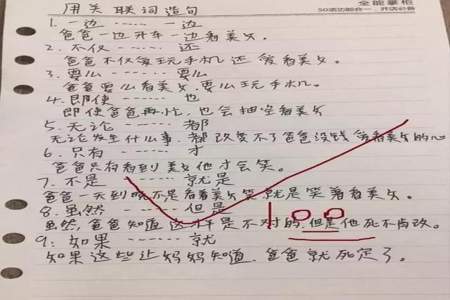 全能掌柜
用关联词造句
1.一边……一边
爸爸一边开车一边看美女.
2.不仅……还
爸爸不仅爱玩手机还爱看美女.
3.要么……要么
爸爸要么看美女,要么玩手机。
4.即使……也
即使爸爸再忙,也会抽空看美女
5.无论……都
无论发生什么事,都改变不了爸爸没钱爱看美女的心
6.只有……才
爸爸只有看到美女他才会笑。
7.不是……就是
爸爸一天到晚不是看着美女笑就是笑着看美女。
8.虽然……但是
虽然,爸爸知道这样是不对的,但是他死不肯改。
100
9.如果……就
如果这些让妈妈知道,爸爸就死定了。